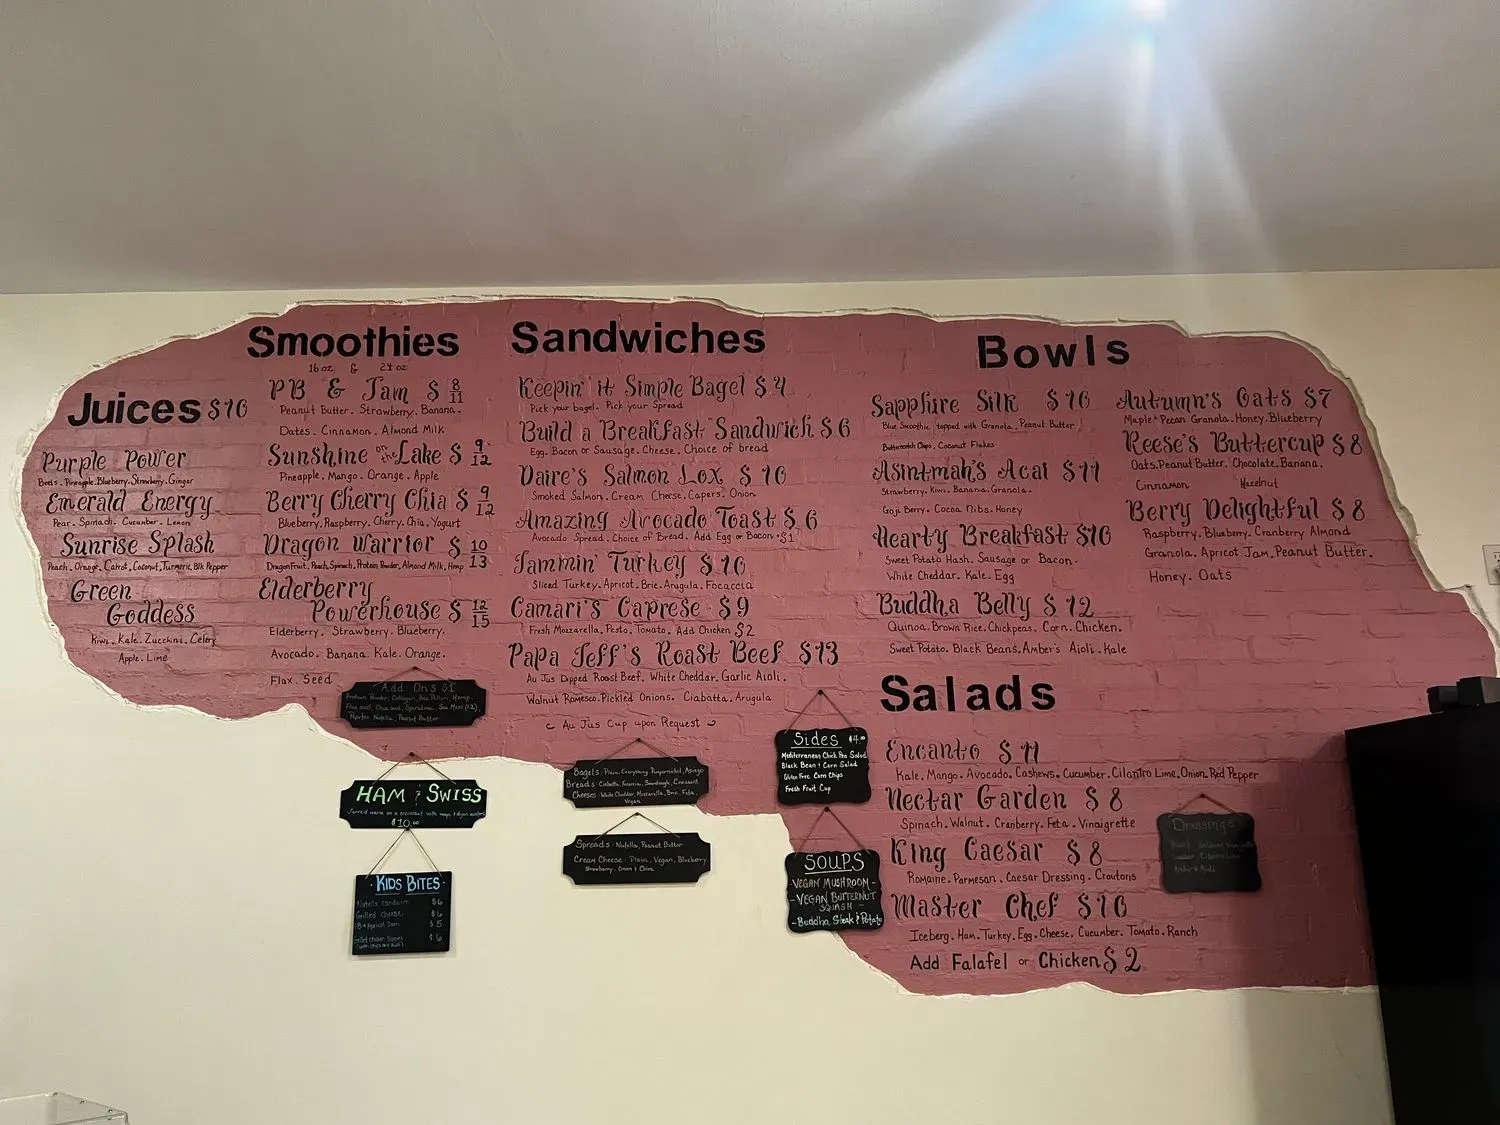 Juices $10
Purple Power
Beets. Pineapple. Blueberry. Strawberry. Ginger
Emerald Energy
Pear. Spinach. Cucumber. Lemon
Sunrise Splash
Peach. Orange. Carrot. Coconut. Turmeric. Blk Pepper
Green
Goddess
Kiwi. Kale. Zucchini. Celery
Apple. Lime
Smoothies
16 oz & 24 oz
PB & Jam $ 8/11
Peanut Butter. Strawberry. Banana.
Dates. Cinnamon. Almond Milk
Sunshine on the Lake $ 9/12
Pineapple. Mango. Orange. Apple
Berry Cherry Chia $ 9/12
Blueberry. Raspberry. Cherry. Chia. Yogurt
Dragon Warrior $ 10/13
DragonFruit. Peach. Spinach. Protein Powder. Almond Milk. Hemp
Elderberry
Powerhouse $ 12/15
Elderberry. Strawberry. Blueberry.
Avocado. Banana. Kale. Orange.
Flax. Seed
Add Ons $1
Protein Powder, Collagen, Bee Pollen, Hemp,
Flaxseed, Chia seed, Spirulina, Sea Moss ($2),
Nutella, Peanut Butter
HAM & SWISS
Served warm on a croissant with mayo &
$10.00
KIDS BITES
Nutella Sandwich $6
Grilled Cheese $6
PB & Apricot Jam $5
$6
Sandwiches
Keepin' it Simple Bagel $4
Pick your bagel. Pick your Spread
Build a Breakfast Sandwich $6
Egg. Bacon or Sausage. Cheese. Choice of bread
Daire's Salmon Lox $10
Smoked Salmon. Cream Cheese. Capers. Onion
Amazing Avocado Toast $6
Avocado Spread. Choice of Bread. Add Egg or Bacon +$1
Jammin' Turkey $10
Sliced Turkey. Apricot. Brie. Arugula. Focaccia
Camari's Caprese $9
Fresh Mozzarella. Pesto. Tomato. Add Chicken $2
Papa Jeff's Roast Beef $13
Au Jus Dipped Roast Beef. White Cheddar. Garlic Aioli.
Walnut Romesco. Pickled Onions. Ciabatta. Arugula
Au Jus Cup upon Request
Bagels: Plain, Everything, Pumpernickel, Asiago
Breads: Ciabatta, Focaccia, Sourdough, Croissant
Cheeses: White Cheddar, Mozzarella, Brie, Feta,
Vegan
Spreads: Nutella, Peanut Butter
Cream Cheese: Plain, Vegan, Blueberry,
Strawberry, Onion & Chive
Sides $4.00
Mediterranean Chick Pea Salad
Black Bean & Corn Salad
Gluten Free Corn Chips
Fresh Fruit Cup
SOUPS
- VEGAN MUSHROOM -
- VEGAN BUTTERNUT
SQUASH -
- Buddha, Steak & Potato
Bowls
Sapphire Silk $10
Blue Smoothie topped with Granola. Peanut Butter
Butterscotch Chips. Coconut Flakes
Asintmah's Acai $11
Strawberry. Kiwi. Banana. Granola.
Goji Berry. Cocoa Nibs. Honey
Hearty Breakfast $10
Sweet Potato Hash. Sausage or Bacon.
White Cheddar. Kale. Egg
Buddha Belly $12
Quinoa. Brown Rice. Chickpeas. Corn. Chicken.
Sweet Potato. Black Beans. Amber's Aioli. Kale
Autumn's Oats $7
Maple Pecan Granola. Honey. Blueberry
Reese's Buttercup $8
Oats. Peanut Butter. Chocolate. Banana.
Cinnamon Hazelnut
Berry Delightful $8
Raspberry. Blueberry. Cranberry Almond
Granola. Apricot Jam. Peanut Butter.
Honey. Oats
Salads
Encanto $11
Kale. Mango. Avocado. Cashews. Cucumber. Cilantro Lime. Onion. Red Pepper
Nectar Garden $8
Spinach. Walnut. Cranberry. Feta. Vinaigrette
King Caesar $8
Romaine. Parmesan. Caesar Dressing. Croutons
Master Chef $10
Iceberg. Ham. Turkey. Egg. Cheese. Cucumber. Tomato. Ranch
Add Falafel or Chicken $2
Dressings